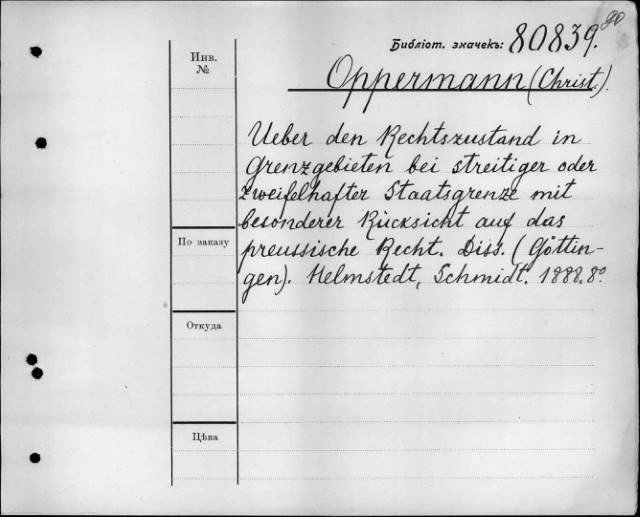 90
Библіот. значекъ: 80839.
Инв.
№
Oppermann (Christ.).
Ueber den Rechtszustand in
Grenzgebieten bei streitiger oder
zweifelhafter Staatsgrenze mit
besonderer Rücksicht auf das
По заказу
preussische Recht. Diss. (Göttin-
gen). Helmstedt, Schmidt. 1888. 8°.
Откуда
Цѣна